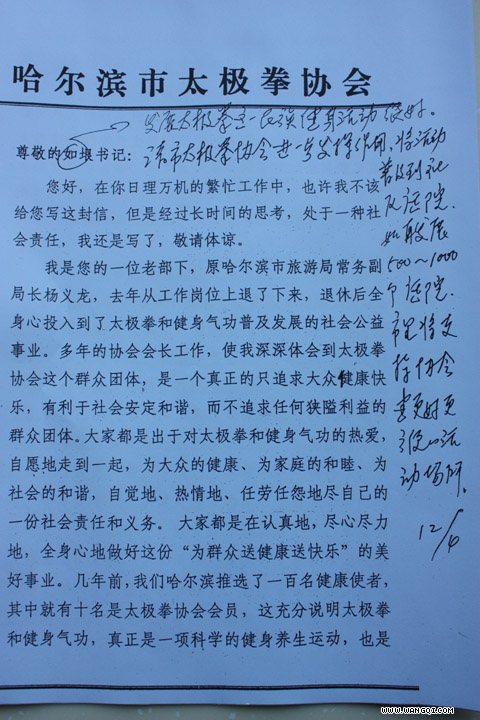 哈尔滨市太极拳协会
发展太极拳这一民族健身活动很好。
请市太极拳协会进一步发挥作用,将活动
普及到社
区、庭院.
如发展
500~1000
个庭院.
市里将支
持协会
建更好更
的活
动场所.
12/4
尊敬的如垠书记:
您好,在你日理万机的繁忙工作中,也许我不该
给您写这封信,但是经过长时间的思考,处于一种社
会责任,我还是写了,敬请体谅。
我是您的一位老部下,原哈尔滨市旅游局常务副
局长杨义龙,去年从工作岗位上退了下来,退休后全
身心投入到了太极拳和健身气功普及发展的社会公益
事业。多年的协会会长工作,使我深深体会到太极拳
协会这个群众团体,是一个真正的只追求大众健康快
乐,有利于社会安定和谐,而不追求任何狭隘利益的
群众团体。大家都是出于对太极拳和健身气功的热爱,
自愿地走到一起,为大众的健康、为家庭的和睦、为
社会的和谐,自觉地、热情地、任劳任怨地尽自己的
一份社会责任和义务。大家都是在认真地,尽心尽力
地,全身心地做好这份“为群众送健康送快乐”的美
好事业。几年前,我们哈尔滨推选了一百名健康使者,
其中就有十名是太极拳协会会员,这充分说明太极拳
和健身气功,真正是一项科学的健身养生运动,也是
WWW.WANGQZ.COM